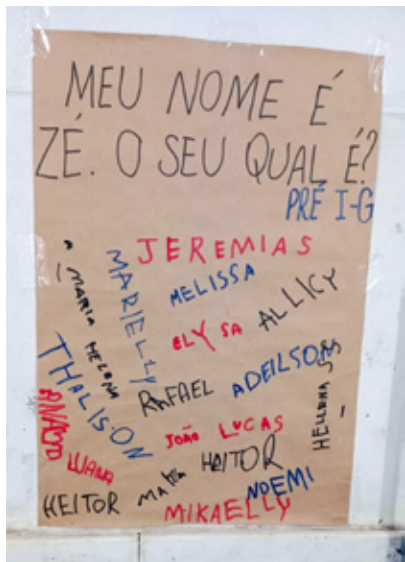 MEU NOME É
ZÉ. O SEU QUAL É?
PRÉ I-G
JEREMIAS
MARIELLY
MELISSA
A MARIA HELENA
ELYSA
ALLICY
THALISON
RAFAEL
ADEILSON
JOÃO LUCAS
HELLENA
LUANA
HEITOR
NOEMI
HEITOR
MIKAELLY